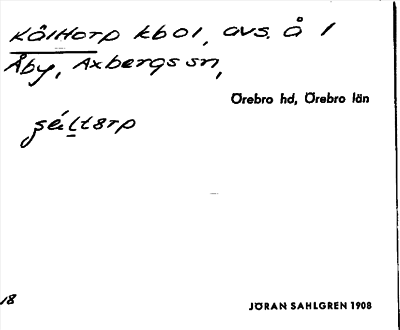 Kålltorp kbol, avs. å 1
Åby, Axbergs sn,
Örebro hd, Örebro län
18
JÖRAN SAHLGREN 1908